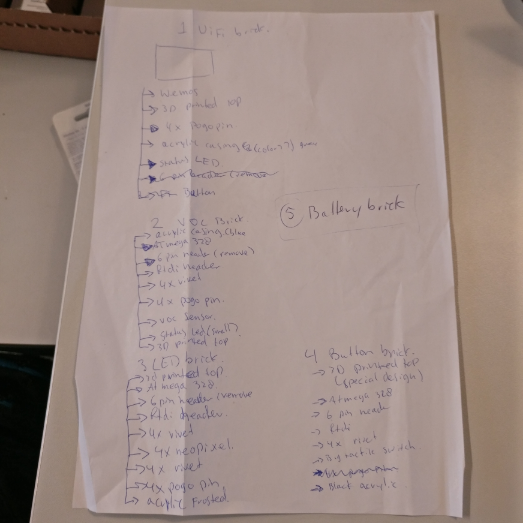 1 Wifi brick.
Wemos
3D printed top
4x pogopin
acrylic casing (color?)
status LED
Button
5 Battery brick
2 VOC Brick
acrylic casing
ATmega 328
6 pin header (remove)
Ftdi header
4x rivet
4x pogo pin.
VOC sensor
Status Led (small)
3D printed top
3 LED brick.
3d printed top
ATmega 328
6 pin header (remove
Ftdi header.
4x rivet
4x neopixel.
4x rivet
4x pogo pin
acrylic Frosted.
4 Button brick.
3D printed top
(special design)
Atmega 328
6 pin header
Ftdi
4x rivet
tactile switch.
Black acrylic